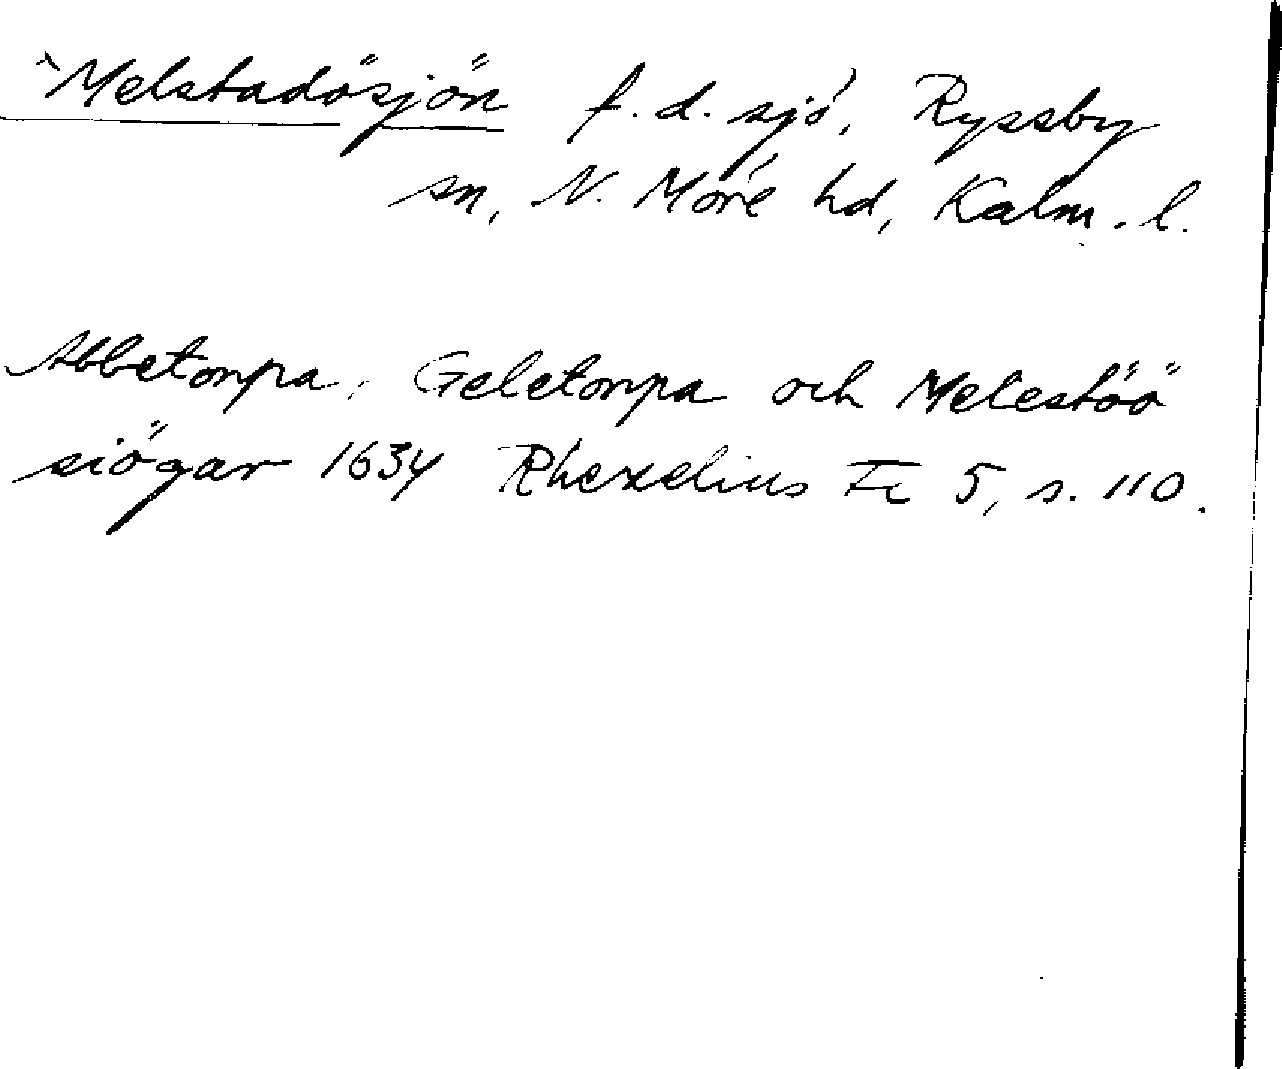 `Melstadösjön f. d. sjö, Ryssby
sn, N. Möre hd, Kalm. l.
Abbetorpa, Geletorpa och Melestöö
siögar 1634 Rhezelius Fc 5, s. 110.